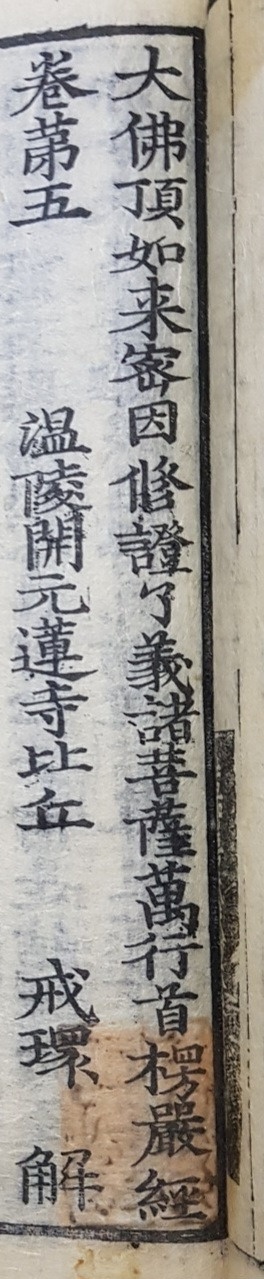 大佛頂如来密因修證了義諸菩薩萬行首楞嚴經
卷苐五 温陵開元蓮寺比丘 戒環 解